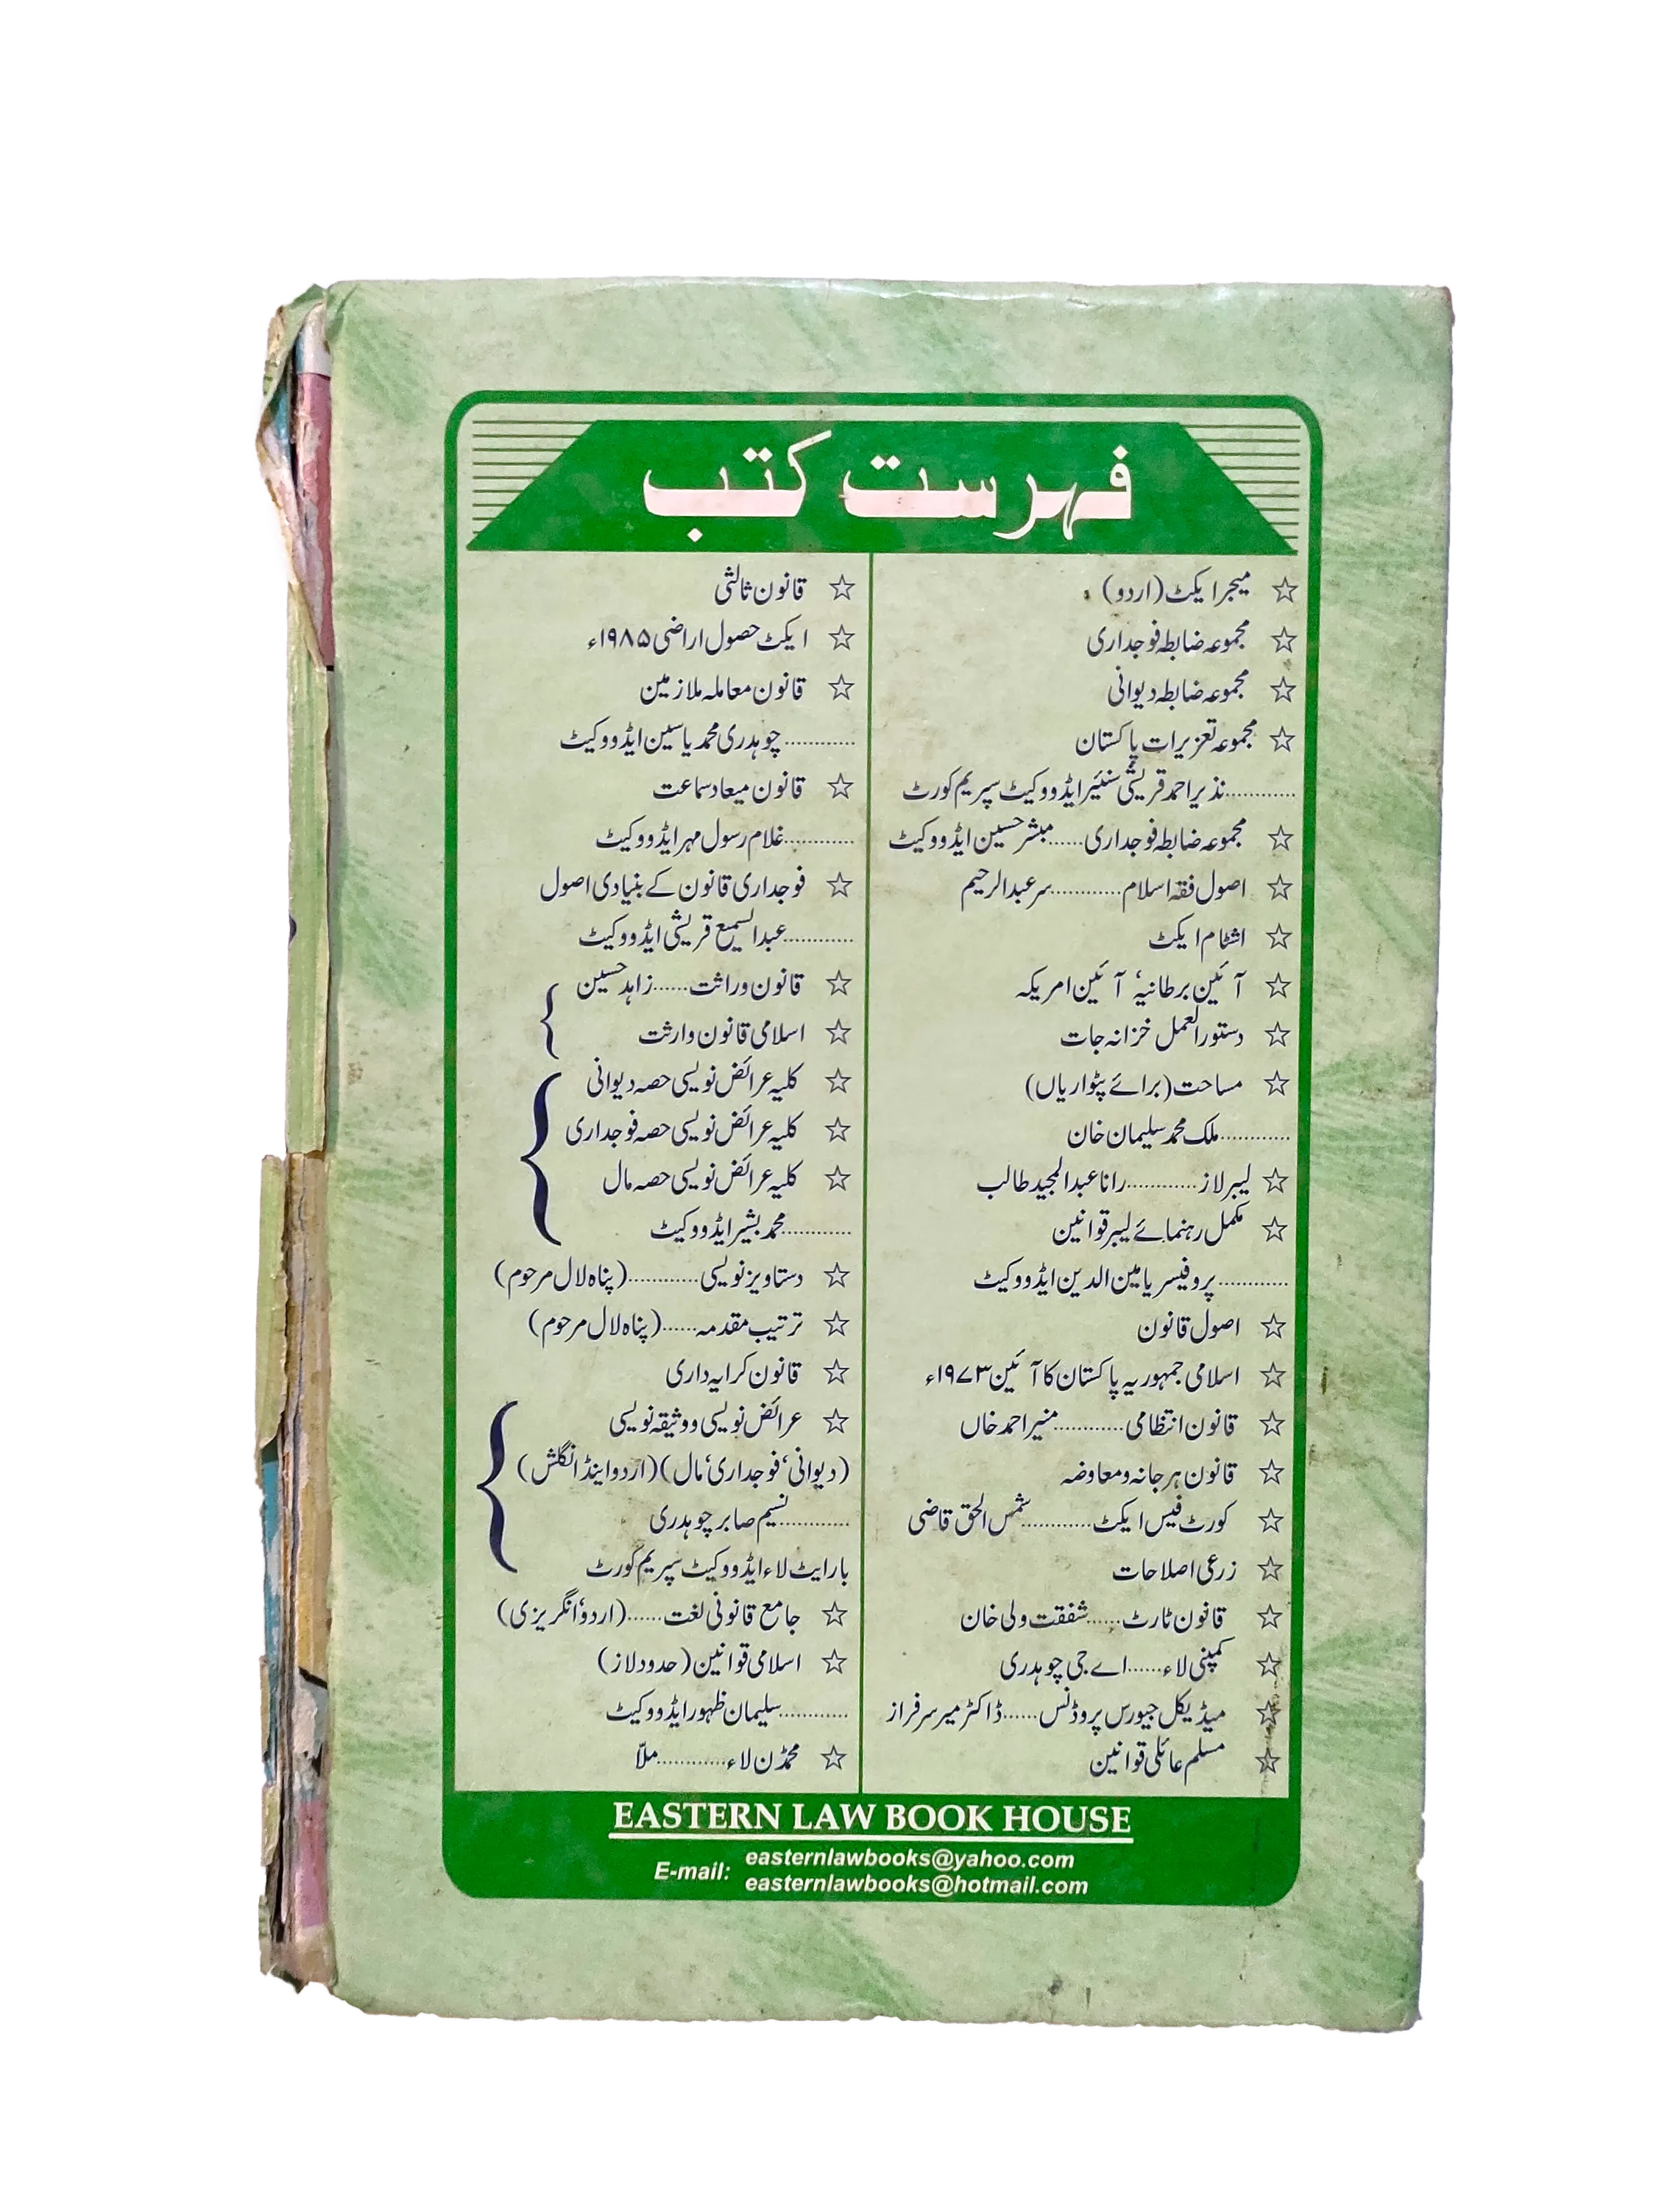 فہرست کتب
☆ میجر ایکٹ (اردو)
☆ مجموعہ ضابطہ فوجداری
☆ مجموعہ ضابطہ دیوانی
☆ مجموعہ تعزیرات پاکستان
............نذیر احمد قریشی سنئیر ایڈووکیٹ سپریم کورٹ
☆ مجموعہ ضابطہ فوجداری......مبشر حسین ایڈووکیٹ
☆ اصول فقہ اسلام............سر عبدالرحیم
☆ اشٹام ایکٹ
☆ آئین برطانیہ، آئین امریکہ
☆ دستورالعمل خزانہ جات
☆ مساحت (برائے پٹواریاں)
............ملک محمد سلیمان خان
☆ لیبر لاز............رانا عبدالمجید طالب
☆ مکمل رہنمائے لیبر قوانین
............پروفیسر یامین الدین ایڈووکیٹ
☆ اصول قانون
☆ اسلامی جمہوریہ پاکستان کا آئین ۱۹۷۳ء
☆ قانون انتظامی............منیر احمد خاں
☆ قانون ہرجانہ و معاوضہ
☆ کورٹ فیس ایکٹ............شمس الحق قاضی
☆ زرعی اصلاحات
☆ قانون ٹارٹ......شفقت ولی خان
☆ کمپنی لاء......اے جی چوہدری
☆ میڈیکل جیورس پروڈنس......ڈاکٹر میر سرفراز
☆ مسلم عائلی قوانین
☆ قانون ثالثی
☆ ایکٹ حصول اراضی ۱۹۸۵ء
☆ قانون معاملہ ملازمین
............چوہدری محمد یاسین ایڈووکیٹ
☆ قانون میعاد سماعت
............غلام رسول مہر ایڈووکیٹ
☆ فوجداری قانون کے بنیادی اصول
............عبدالسمیع قریشی ایڈووکیٹ
☆ قانون وراثت......زاہد حسین
☆ اسلامی قانون وارثت
☆ کلیہ عرائض نویسی حصہ دیوانی
☆ کلیہ عرائض نویسی حصہ فوجداری
☆ کلیہ عرائض نویسی حصہ مال
............محمد بشیر ایڈووکیٹ
☆ دستاویز نویسی............(پناہ لال مرحوم)
☆ ترتیب مقدمہ......(پناہ لال مرحوم)
☆ قانون کرایہ داری
☆ عرائض نویسی و وثیقہ نویسی
(دیوانی، فوجداری، مال) (اردو اینڈ انگلش)
............نسیم صابر چوہدری
بارایٹ لاء ایڈووکیٹ سپریم کورٹ
☆ جامع قانونی لغت......(اردو، انگریزی)
☆ اسلامی قوانین (حدود لاز)
............سلیمان ظہور ایڈووکیٹ
☆ محمڈن لاء............ملاّ
EASTERN LAW BOOK HOUSE
E-mail: easternlawbooks@yahoo.com
easternlawbooks@hotmail.com